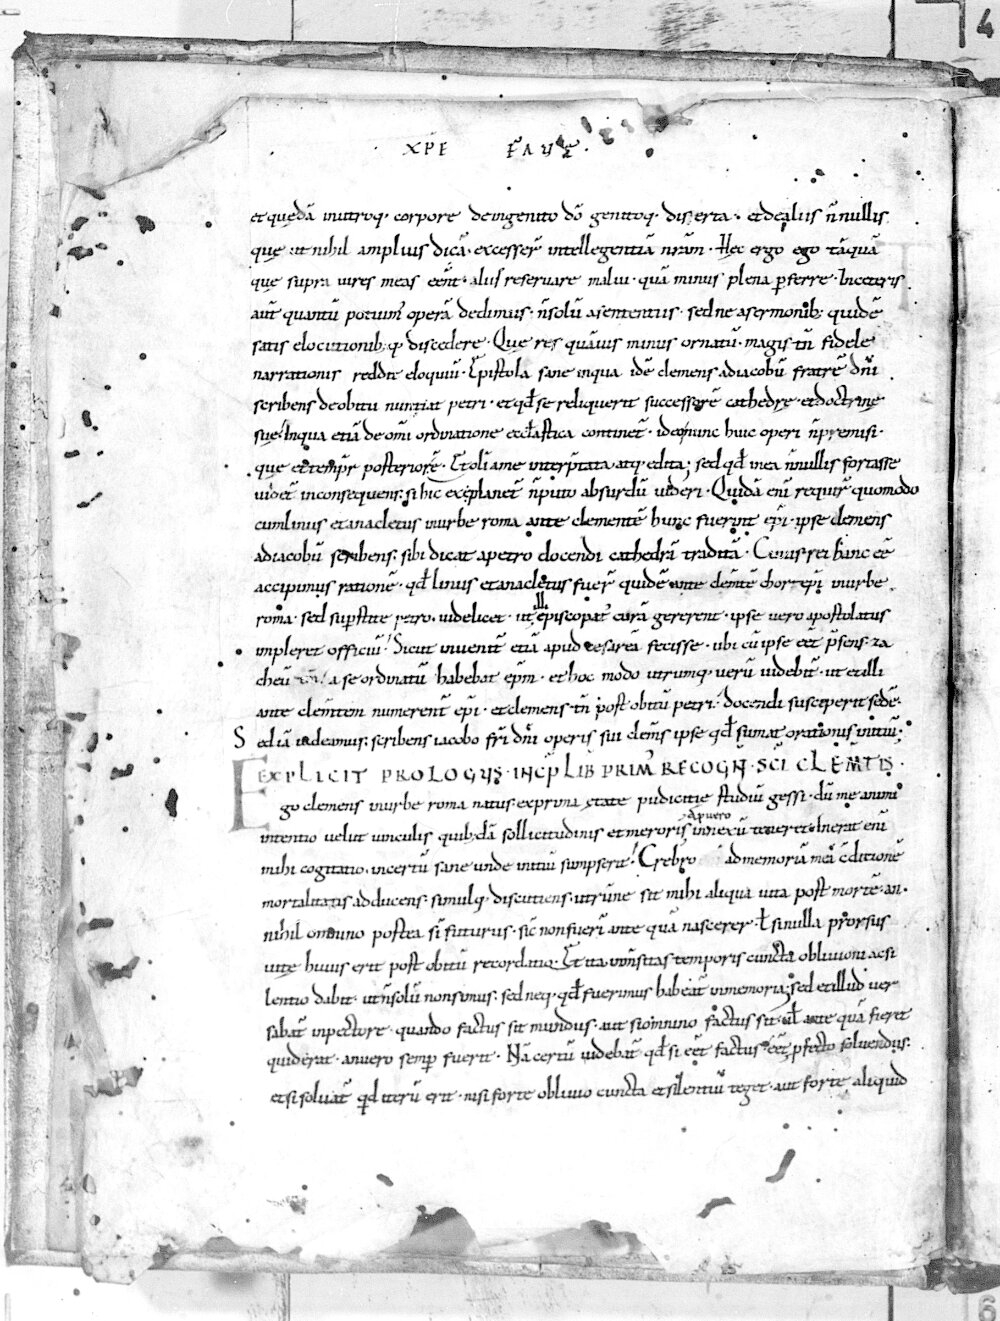 XPE FAUE.
et quędā inutroq· corpore deingenito dō genitoq· diserta· et dealiis n̄nullis
quę ut nihil amplius dicā· excesser̄ intellegentiā nrām· Hec ergo ego tāquā
que supra uires meas eēnt· aliis reseruare malui· quā minus plena p̄ferre· Inceteris
aut̄ quantū potuim' operā dedimus· n̄solū asententiis· sedne asermonib; quidē
satis elocutionib;q· discedere· Que res quāuis minus ornatū· magis tn̄ fidele
narrationis reddit eloquiū· Epistola sane inqua idē clemens adiacobū fratrē dn̄i
scribens deobitu nuntiat petri· et qd̄ se reliquerit successorē cathedrę· et doctrinę
suę· Inqua etiā de om̄i ordinatione eccl̄astica continet̄· ideo nunc huic operi n̄premisi·
que et tempr̄ posteriorē· Et oli ame interp̄tata atq· edita; sed qd̄ inea n̄nullis fortasse
uidet̄ inconsequens· si hic explanet̄ n̄puto absurdū uideri· Quidā eni requir̄ quomodo
cumlinus et anacletus inurbe roma ante clementē hunc fuerint ep̄i· ipse clemens
adiacobū scribens· sibi dicat apetro docendi cathedrā traditā· Cuius rei hanc eē
accipimus rationē· qd̄ linus et anacletus fuer̄ quidē ante clem̄tē ep̄i inurbe
roma· sed sup̄stite petro· uidelicet· ut illi episcopat' curā gererent· ipse uero apostolatus
impleret officiū· Sicut inuenit̄ etiā apud cesareā fecisse· ubi cū ipse eēt p̄sens· za
cheū tn̄ a se ordinatū habebat ep̄m· et hoc modo utrumq· uerū uidebit̄· ut et illi
ante clem̄tem numerent̄ ep̄i· et clemens tn̄ post obitū petri· docendi susceperit sedē·
Sed iā uideamus· scribens iacobo fr̄i dn̄i operis sui clem̄s ipse qd̄ sumat orationis initiū·
EXPLICIT PROLOGUS· INCP̄ LIB PRIM' RECOGN̄· SC̄I CLEM̄TIS·
Ego clemens inurbe roma natus· exprima ętate pudicitie studiū gessi· dū me animi
apuero
intentio uelut uinculis quibusdā sollicitudinis et meroris innexū teneret· Inerat eni
mihi cogitatio· incertū sane unde initiū sumpserit· Crebro admemoriā mei c̄ditionē
mortalitatis adducens· simulq· discutiens· utrūne sit mihi aliqua uita post mortē· an·
nihil omnino postea si futurus· sic̄ non fueri ante quā nascerer· ł sinulla prorsus
uitę huius erit post obitū recordatio· Et ita inm̄sitas temporis cuncta obliuioni ac si
lentio dabit· ut n̄solū nonsimus· sed neq· qd̄ fuerimus habeat̄ inmemoria; sed et illud uer
sabat̄ inpectore· quando factus sit mundus· aut siomnino factus sit· uł ante quā fieret
quid erat· anuero semp̄ fuerit· Nā certū uidebat̄ qd̄ si eēt factus· eēt p̄fecto soluendus·
et si soluat̄ qd iterū erit· nisi forte obliuio cuncta et silentiū teget· aut forte aliquid